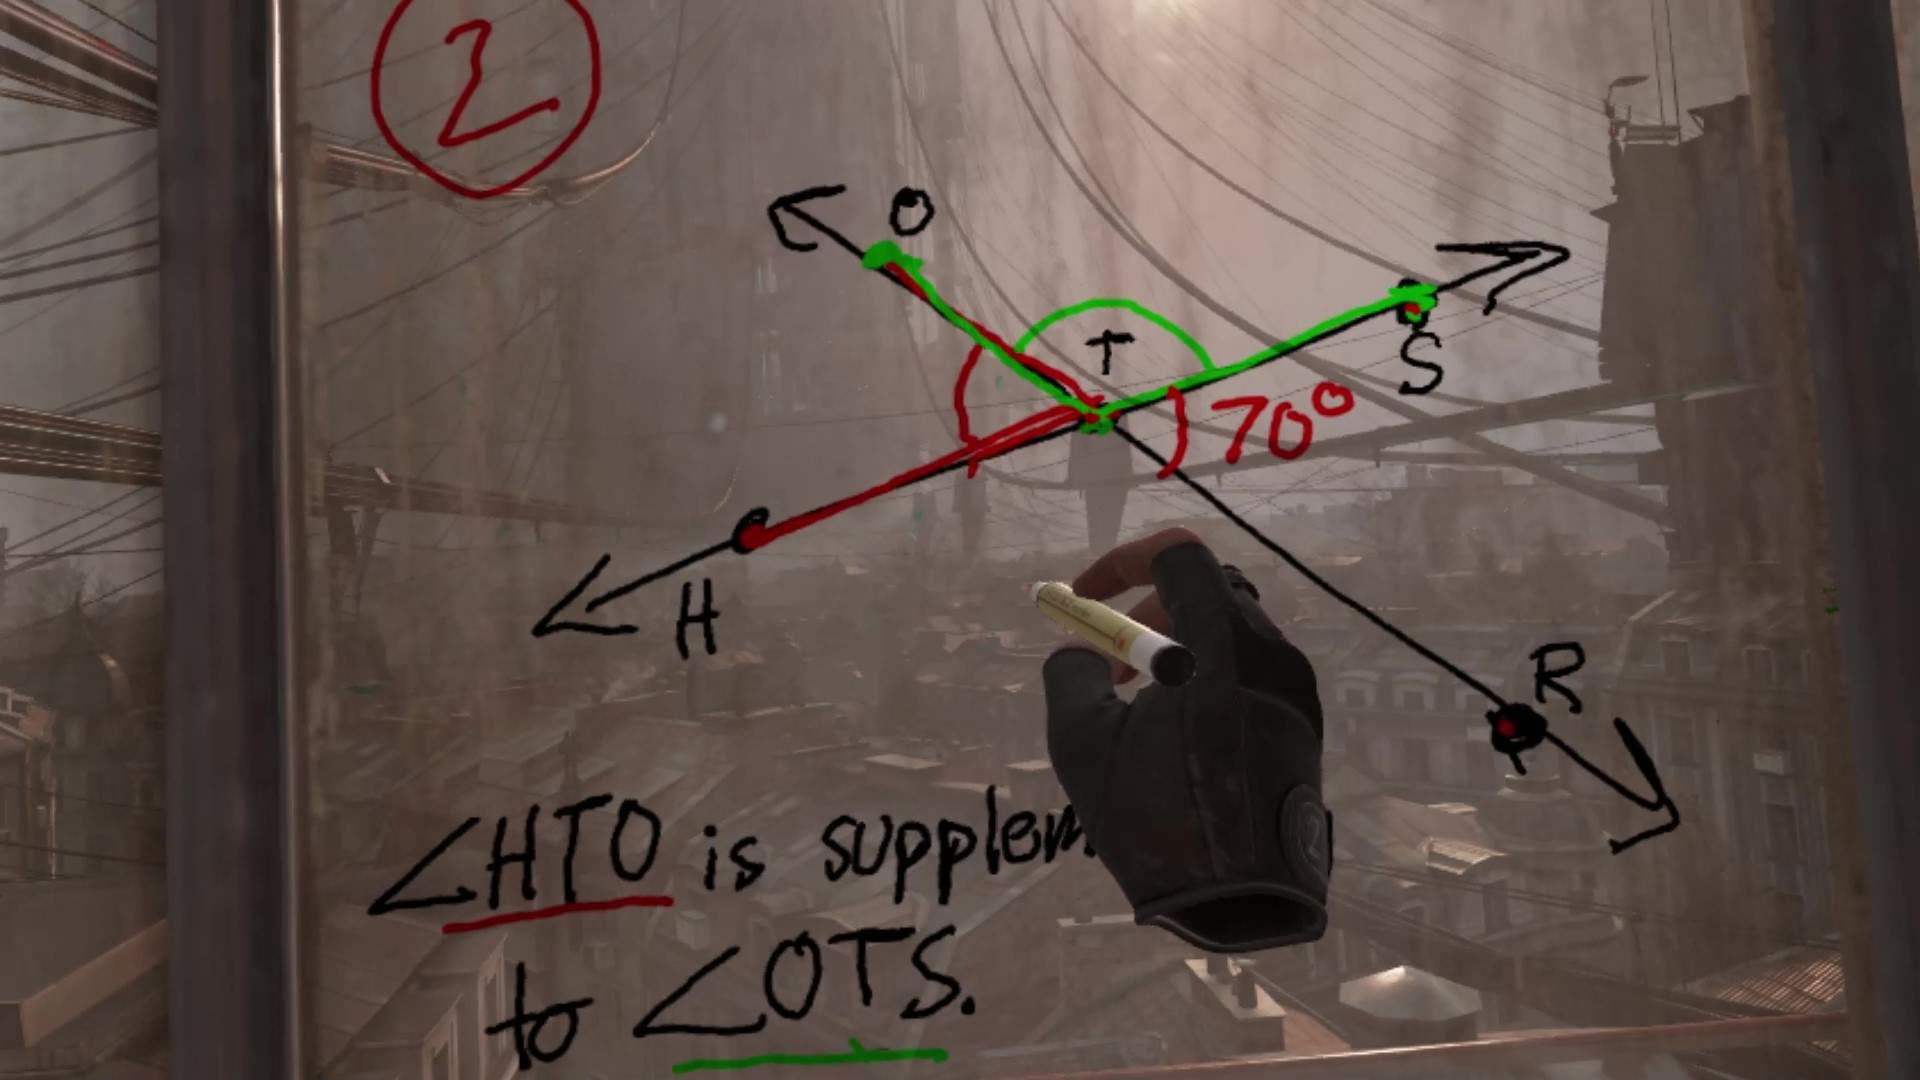 2
O
T
S
70°
H
R
∠HTO is supplem
to ∠OTS.